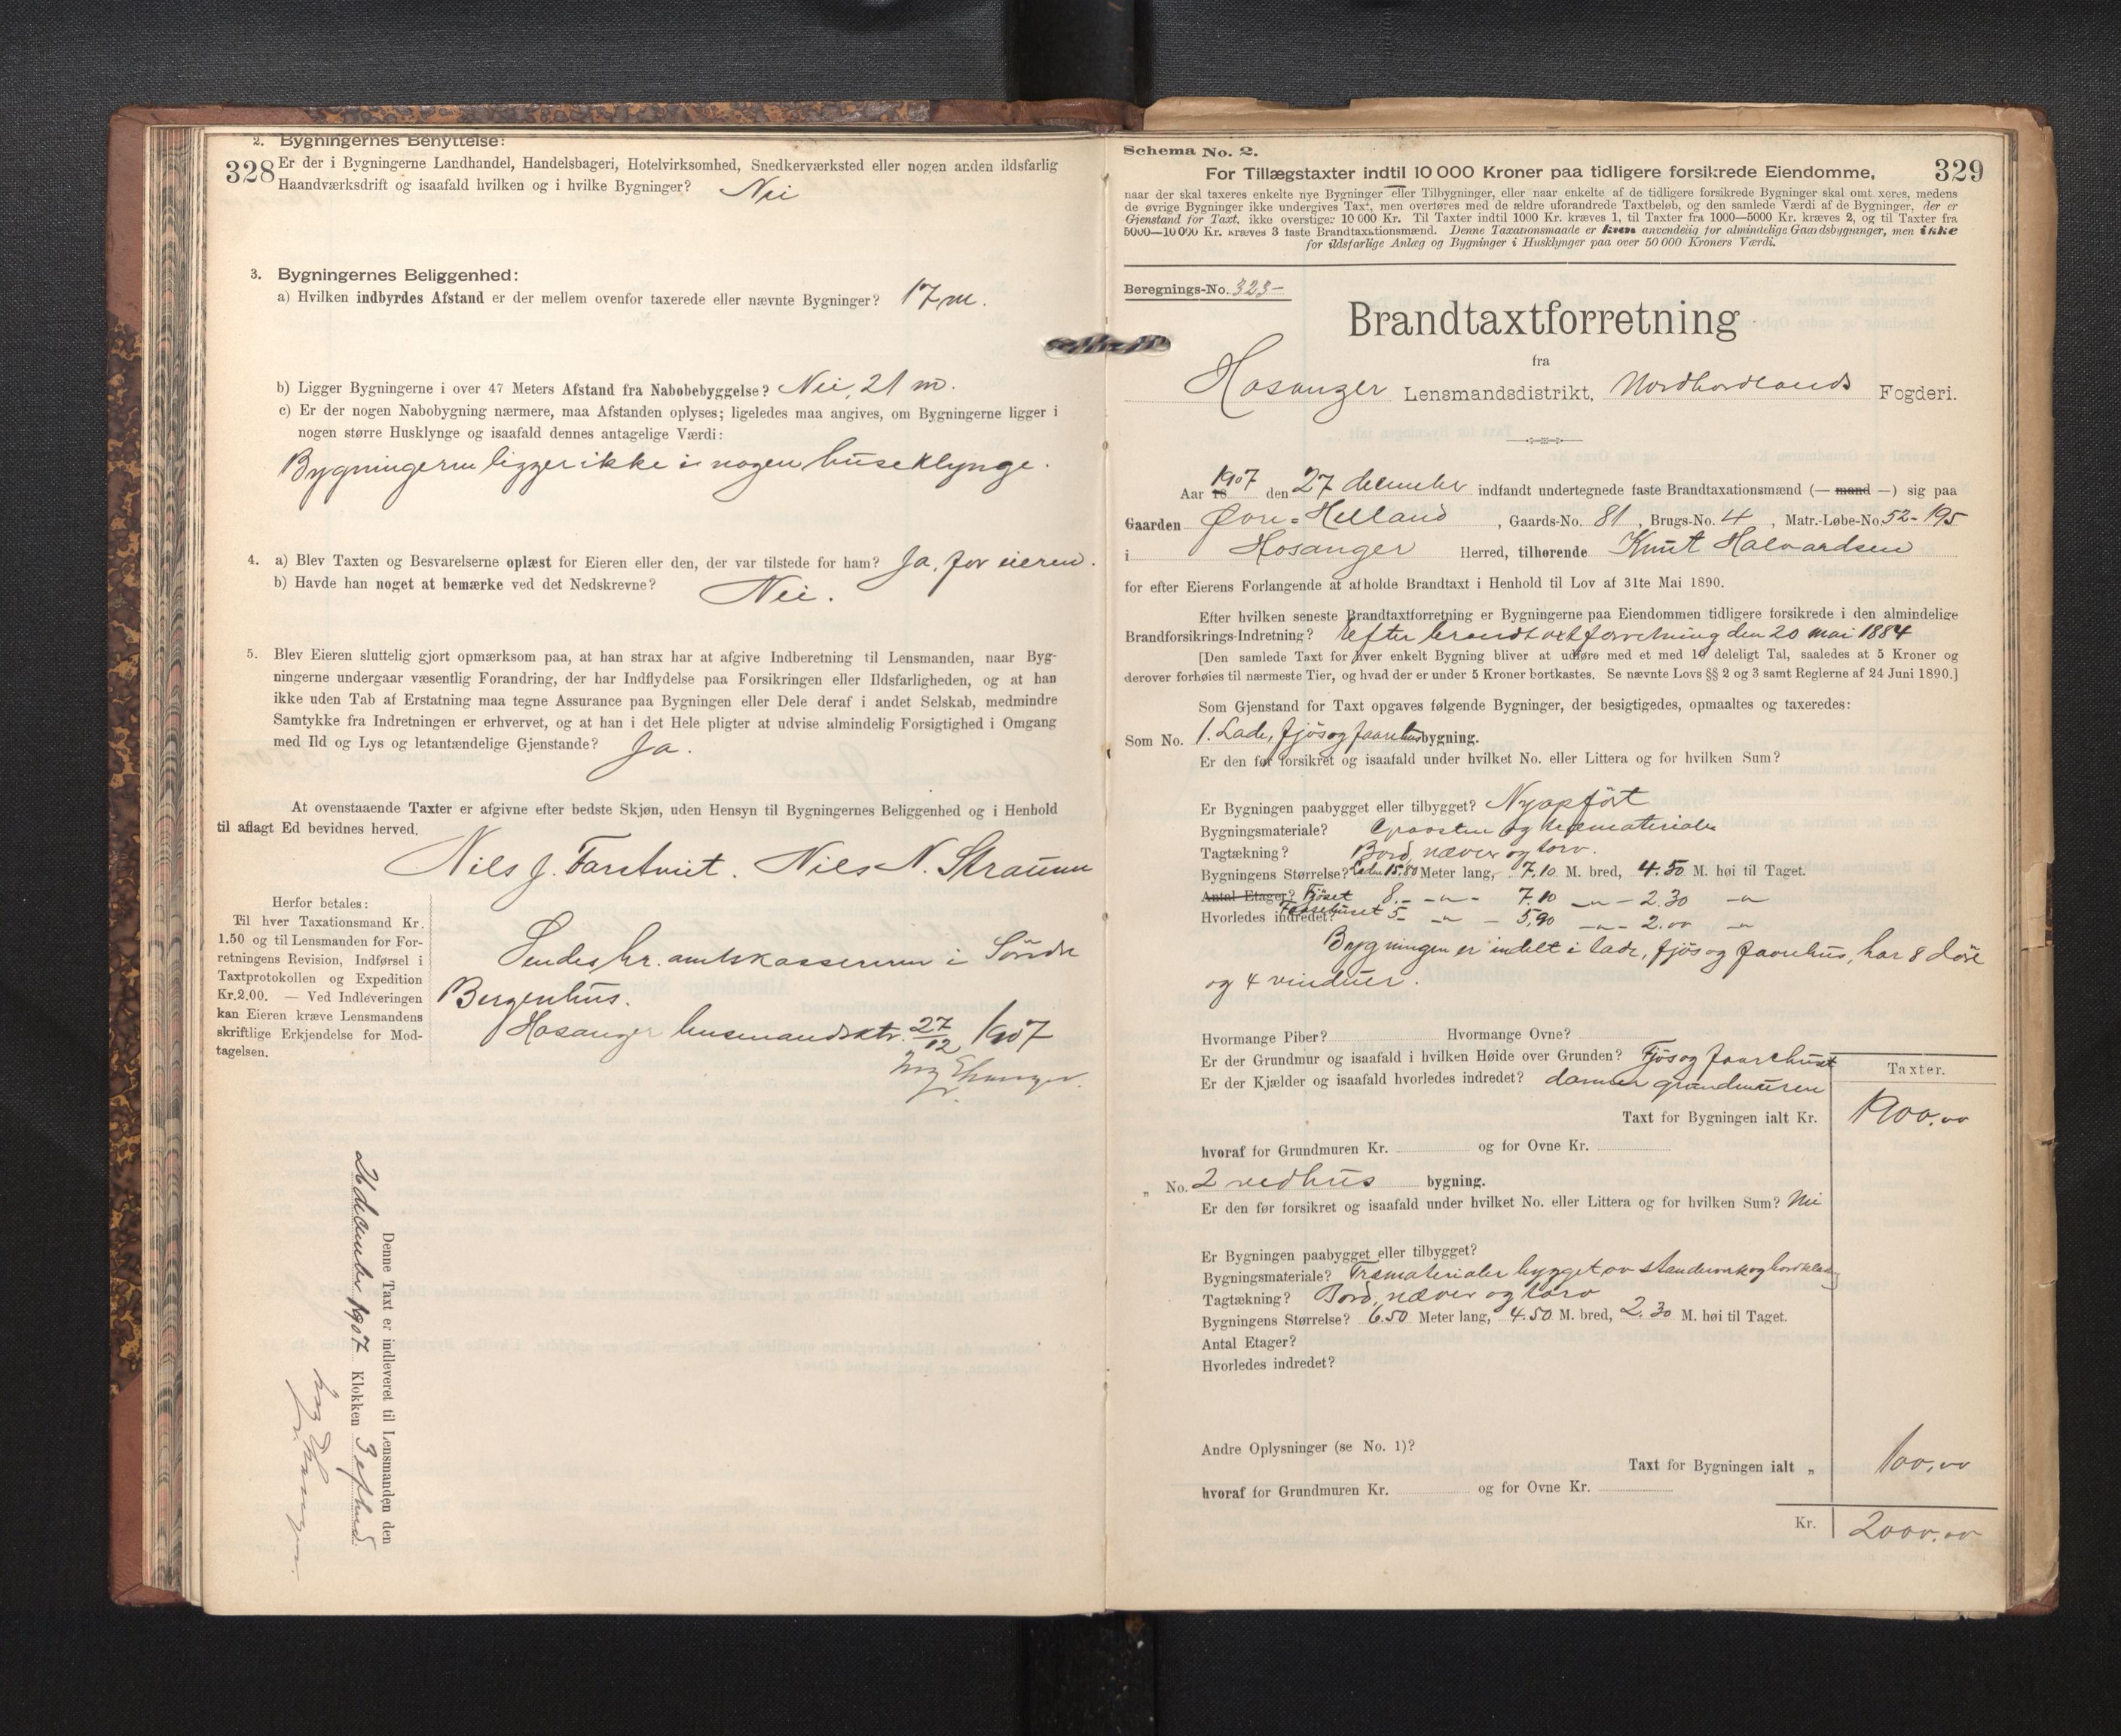 2. Bygningernes Benyttelse:
328
Er der i Bygningerne Landhandel, Handelsbageri, Hotelvirksomhed, Snedkerværksted eller nogen anden ildsfarlig
Haandværksdrift og isaafald hvilken og i hvilke Bygninger? Nei
3. Bygningernes Beliggenhed:
a) Hvilken indbyrdes Afstand er der mellem ovenfor taxerede eller nævnte Bygninger? 17 m.
b) Ligger Bygningerne i over 47 Meters Afstand fra Nabobebyggelse? Nei, 21 m.
c) Er der nogen Nabobygning nærmere, maa Afstanden oplyses; ligeledes maa angives, om Bygningerne ligger i
nogen større Husklynge og isaafald dennes antagelige Værdi:
Bygningerne ligger ikke i nogen huseklynge.
4. a) Blev Taxten og Besvarelserne oplæst for Eieren eller den, der var tilstede for ham? Ja, for eieren.
b) Havde han noget at bemærke ved det Nedskrevne? Nei.
5. Blev Eieren sluttelig gjort opmærksom paa, at han strax har at afgive Indberetning til Lensmanden, naar Byg-
ningerne undergaar væsentlig Forandring, der har Indflydelse paa Forsikringen eller Ildsfarligheden, og at han
ikke uden Tab af Erstatning maa tegne Assurance paa Bygningen eller Dele deraf i andet Selskab, medmindre
Samtykke fra Indretningen er erhvervet, og at han i det Hele pligter at udvise almindelig Forsigtighed i Omgang
med Ild og Lys og letantændelige Gjenstande? Ja.
At ovenstaaende Taxter er afgivne efter bedste Skjøn, uden Hensyn til Bygningernes Beliggenhed og i Henhold
til aflagt Ed bevidnes herved.
Nils J. Farstveit. Nils N. Straume
Herfor betales:
Til hver Taxationsmand Kr.
1.50 og til Lensmanden for For-
retningens Revision, Indførsel i
Taxtprotokollen og Expedition
Kr.2.00. — Ved Indleveringen
kan Eieren kræve Lensmandens
skriftlige Erkjendelse for Mod-
tagelsen.
Sendes hr. amtskassereren i Søndre
Bergenhus.
Hosanger lensmandsktr. 27/12 1907
Denne Taxt er indleveret til Lensmanden den
december 1907 Klokken 3
Schema No. 2.
329
For Tillægstaxter indtil 10 000 Kroner paa tidligere forsikrede Eiendomme,
naar der skal taxeres enkelte nye Bygninger eller Tilbygninger, eller naar enkelte af de tidligere forsikrede Bygninger skal omt xeres, medens
de øvrige Bygninger ikke undergives Taxt, men overføres med de ældre uforandrede Taxtbeløb, og den samlede Værdi af de Bygninger, der er
Gjenstand for Taxt, ikke overstiger 10 000 Kr. Til Taxter indtil 1000 Kr. kræves 1, til Taxter fra 1000—5000 Kr. kræves 2, og til Taxter fra
5000—10 000 Kr. kræves 3 faste Brandtaxationsmænd. Denne Taxationsmaade er kun anvendelig for almindelige Gaardsbygninger, men ikke
for ildsfarlige Anlæg og Bygninger i Husklynger paa over 50 000 Kroners Værdi.
Beregnings-No. 323-
Brandtaxtforretning
fra
Hosanger Lensmandsdistrikt, Nordhordlands Fogderi.
Aar 18 1907 den 27 december indfandt undertegnede faste Brandtaxationsmænd (— mand —) sig paa
Gaarden Øvre-Helland, Gaards-No. 81, Brugs-No. 4, Matr.-Løbe-No. 52-195
i Hosanger Herred, tilhørende Knut Halvardsen
for efter Eierens Forlangende at afholde Brandtaxt i Henhold til Lov af 31te Mai 1890.
Efter hvilken seneste Brandtaxtforretning er Bygningerne paa Eiendommen tidligere forsikrede i den almindelige
Brandforsikrings-Indretning? Efter brandtaxtforretning den 20 mai 1884
[Den samlede Taxt for hver enkelt Bygning bliver at udføre med et med 10 deleligt Tal, saaledes at 5 Kroner og
derover forhøies til nærmeste Tier, og hvad der er under 5 Kroner bortkastes. Se nævnte Lovs §§ 2 og 3 samt Reglerne af 24 Juni 1890.]
Som Gjenstand for Taxt opgaves følgende Bygninger, der besigtigedes, opmaaltes og taxeredes:
Som No. 1. Lade, fjös og faarehus bygning.
Er den før forsikret og isaafald under hvilket No. eller Littera og for hvilken Sum?
Er Bygningen paabygget eller tilbygget? Nyopfört
Bygningsmateriale? Graasten og træmaterialer
Tagtækning? Bord, næver og torv.
Bygningens Størrelse? Laden 15.80 Meter lang, 7.10 M. bred, 4.50 M. høi til Taget.
Antal Etager? Fjöset 8.- -"- 7.10 -"- 2.30 -"-
Hvorledes indredet? Faarehuset 5- -"- 5.90 -"- 2.00 -"-
Bygningen er indelt i lade, fjös og faarehus, har 8 döre
og 4 vinduer.
Hvormange Piber? Hvormange Ovne?
Er der Grundmur og isaafald i hvilken Høide over Grunden? Fjös og faarehuset
Er der Kjælder og isaafald hvorledes indredet? danner grundmuren
Taxter.
Taxt for Bygningen ialt Kr. 1900,00
hvoraf for Grundmuren Kr. og for Ovne Kr.
„ No. 2 vedhus bygning.
Er den før forsikret og isaafald under hvilket No. eller Littera og for hvilken Sum? Nei
Er Bygningen paabygget eller tilbygget?
Bygningsmateriale? Træmaterialer bygget av standerverk og bordklædn
Tagtækning? Bord, næver og torv
Bygningens Størrelse? 6.50 Meter lang, 4.50 M. bred, 2.30 M. høi til Taget.
Antal Etager?
Hvorledes indredet?
Andre Oplysninger (se No. 1)?
Taxt for Bygningen ialt „ 100,00
hvoraf for Grundmuren Kr. og for Ovne Kr.
Kr. 2000,00